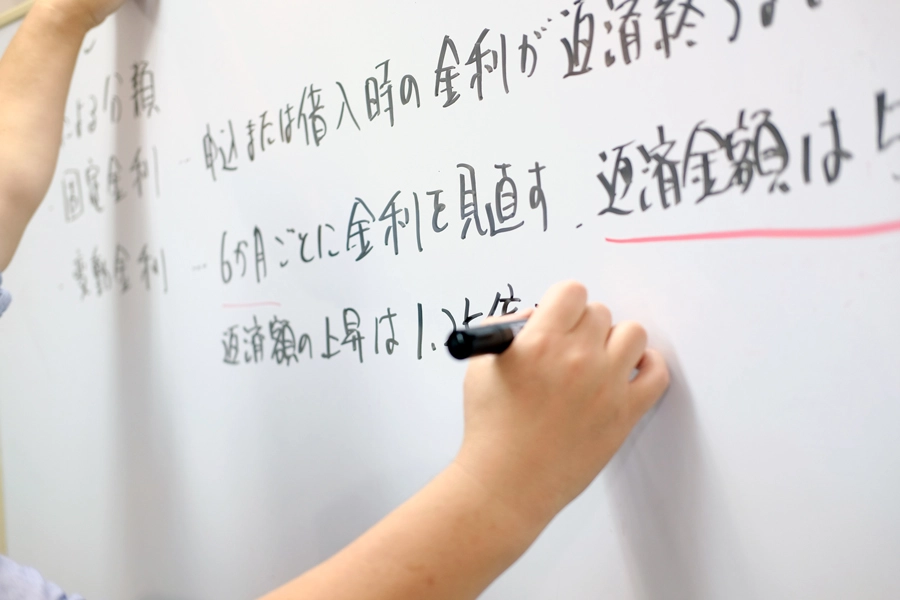 分類
固定金利 … 申込または借入時の金利が返済終
変動金利 … 6か月ごとに金利を見直す. 返済金額は5
返済額の上昇は1.25倍